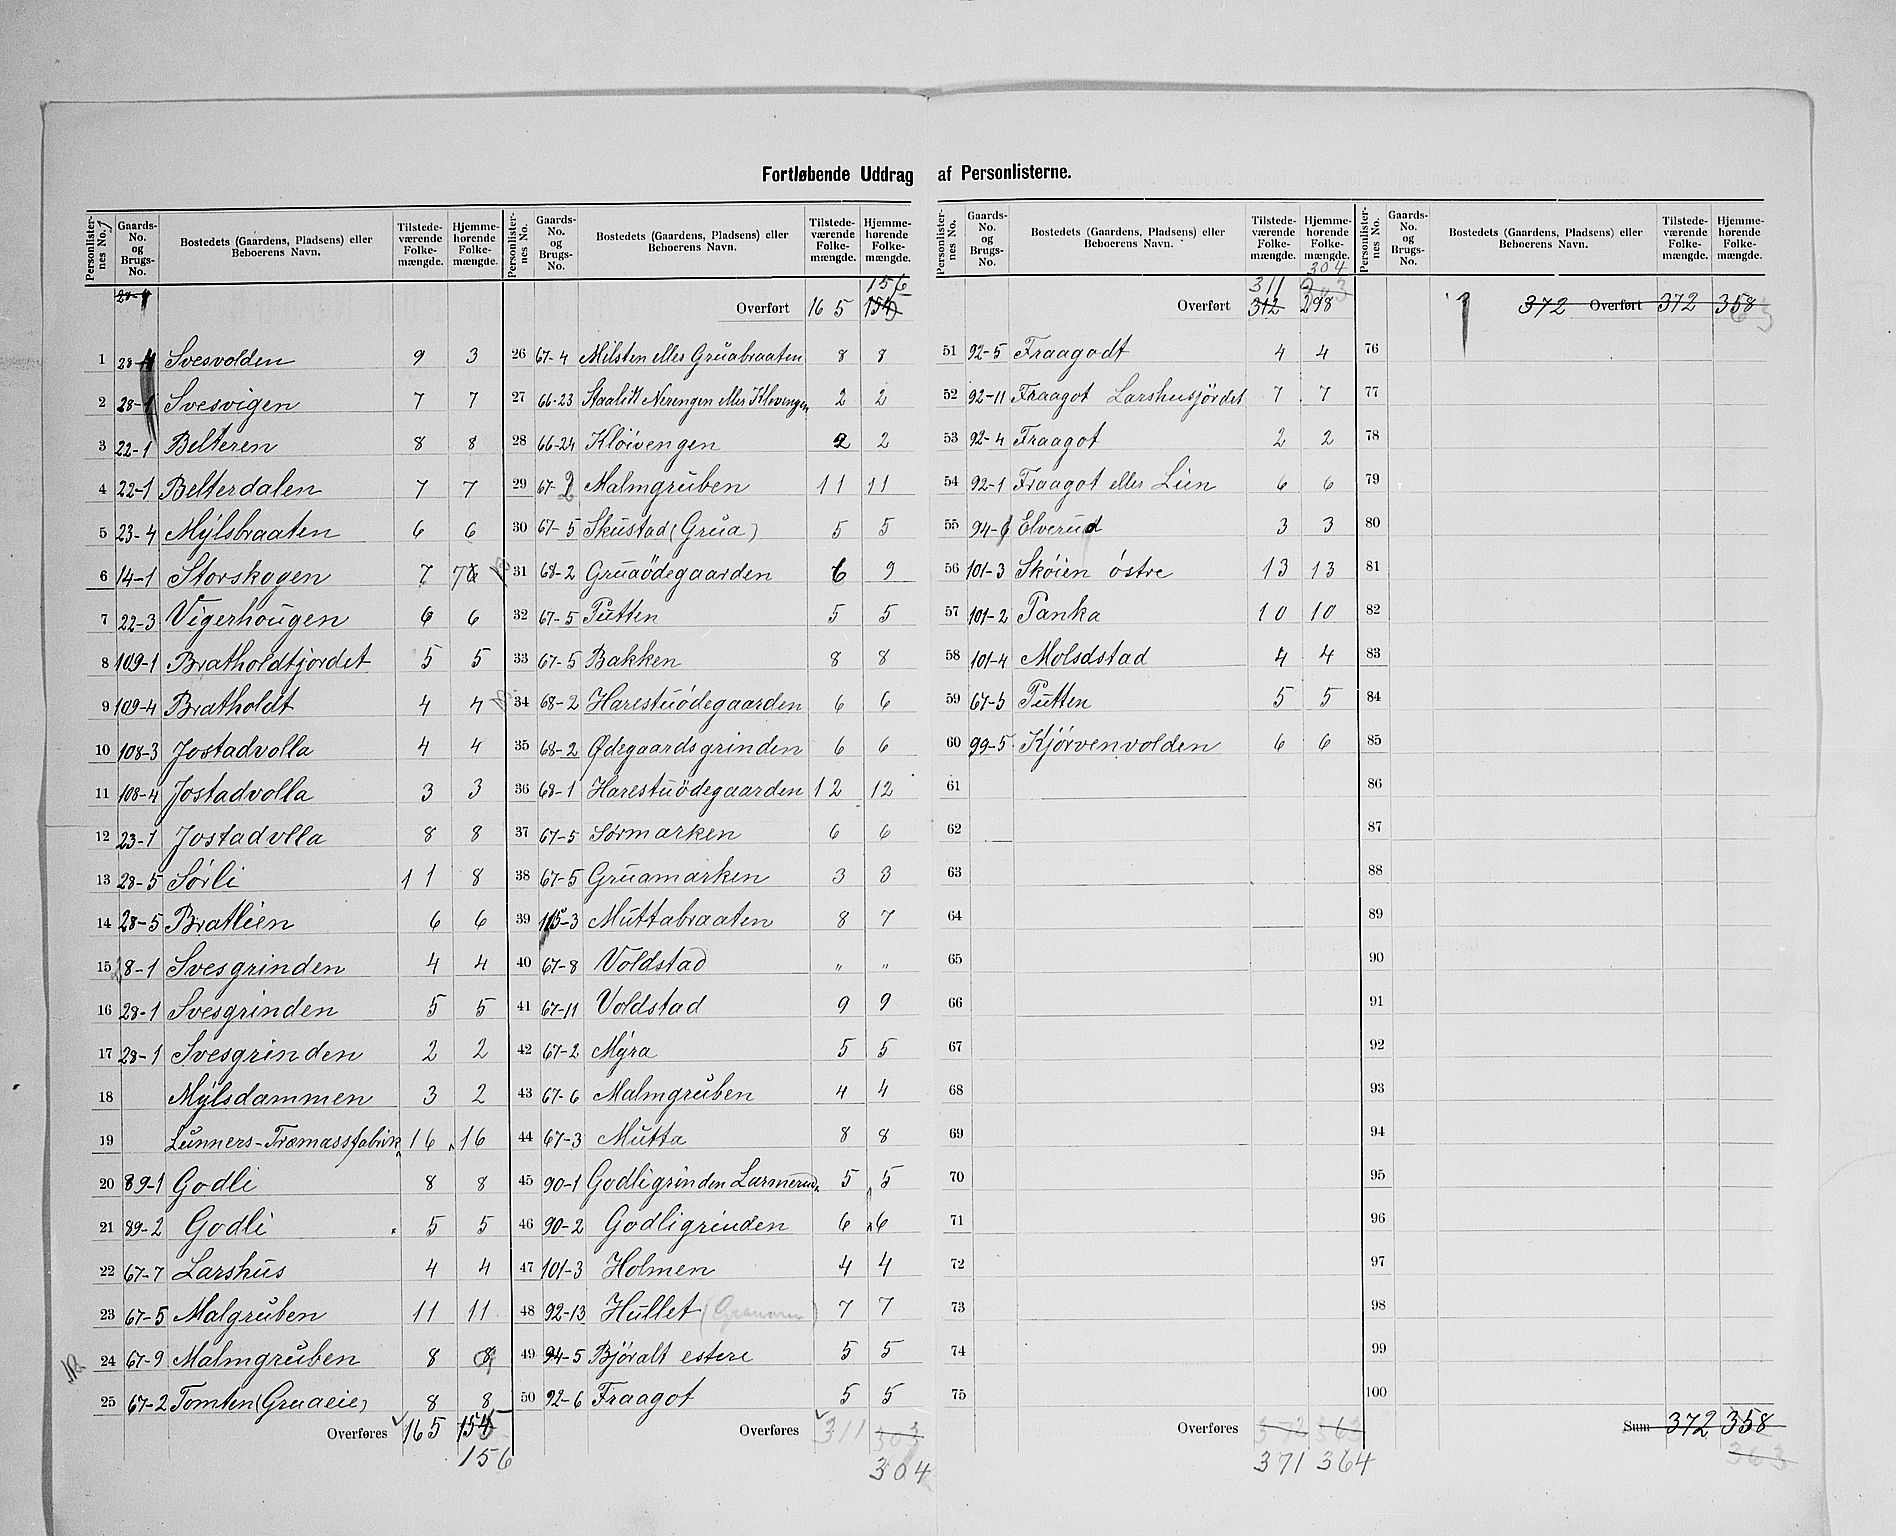 Fortløbende Uddrag af Personlisterne.
Personlister-nes No. Gaards-No. og Brugs-No. Bostedets (Gaardens, Pladsens) eller Beboerens Navn. Tilstede-værende Folke-mængde. Hjemme-hørende Folke-mængde.
28-4
1 28-4 Svesvolden 9 3
2 28-1 Svesvigen 7 7
3 22-1 Belteren 8 8
4 22-1 Belterdalen 7 7
5 23-4 Mylsbraaten 6 6
6 14-1 Storskogen 7 7
7 22-3 Vigerhougen 6 6
8 109-1 Bratholdtjordet 5 5
9 109-4 Bratholdt 4 4
10 108-3 Jostadvolla 4 4
11 108-4 Jostadvolla 3 3
12 23-1 Jostadvlla 8 8
13 28-5 Sørli 11 8
14 28-5 Bratlien 6 6
15 28-1 Svesgrinden 4 4
16 28-1 Svesgrinden 5 5
17 28-1 Svesgrinden 2 2
18 Mylsdammen 3 2
19 Lunners-Træmassfabrik 16 16
20 89-1 Godli 8 8
21 89-2 Godli 5 5
22 67-7 Larshus 4 4
23 67-5 Malgruben 11 11
24 67-9 Malmgruben 8
25 67-2 Tomten (Gruaeie) 8 8
Overføres 165 154
156
Personlister-nes No. Gaards-No. og Brugs-No. Bostedets (Gaardens, Pladsens) eller Beboerens Navn. Tilstede-værende Folke-mængde. Hjemme-hørende Folke-mængde.
156
Overført 165 154
26 67-4 Milsten elles Gruabraaten 8 8
27 66-23 Staalitt Nerengen eller Klevengen 2 2
28 66-24 Kløivengen 2 2
29 67-2 Malmgruben 11 11
30 67-5 Skustad (Grua) 5 5
31 68-2 Gruaödegaarden 6 9
32 67-5 Putten 5 5
33 67-5 Bakken 8 8
34 68-2 Harestuödegaarden 6 6
35 68-2 Ødegaardsgrinden 6 6
36 68-1 Harestuödegaarden 12 12
37 67-5 Sørmarken 6 6
38 67-5 Gruamarken 3 3
39 115-3 Muttabraaten 8 7
40 67-8 Voldstad " "
41 67-11 Voldstad 9 9
42 67-2 Myra 5 5
43 67-6 Malmgruben 4 4
44 67-3 Mutta 8 8
45 90-1 Godligrinden Larmerud 5 5
46 90-2 Godligrinden 6 6
47 101-3 Holmen 4 4
48 92-13 Hullet 7 7
49 94-5 Björalt estere 5 5
50 92-6 Fraagot 5 5
Overføres 311 303
304
Personlister-nes No. Gaards-No. og Brugs-No. Bostedets (Gaardens, Pladsens) eller Beboerens Navn. Tilstede-værende Folke-mængde. Hjemme-hørende Folke-mængde.
304
311 303
Overført 312 298
51 92-5 Fraagodt 4 4
52 92-11 Fraagot Larshusjördet 7 7
53 92-4 Fraagot 2 2
54 92-1 Fraagot eller Lien 6 6
55 94-6 Elverud 3 3
56 101-3 Skøien östre 13 13
57 101-2 Panka 10 10
58 101-4 Molsdstad 4 4
59 67-5 Putten 5 5
60 99-5 Kjörvenvolden 6 6
61
62
63
64
65
66
67
68
69
70
71
72
73
74
75
Overføres 372 363
371 364
Personlister-nes No. Gaards-No. og Brugs-No. Bostedets (Gaardens, Pladsens) eller Beboerens Navn. Tilstede-værende Folke-mængde. Hjemme-hørende Folke-mængde.
372 Overført 372 358
63
76
77
78
79
80
81
82
83
84
85
86
87
88
89
90
91
92
93
94
95
96
97
98
99
100
Sum 372 358
363